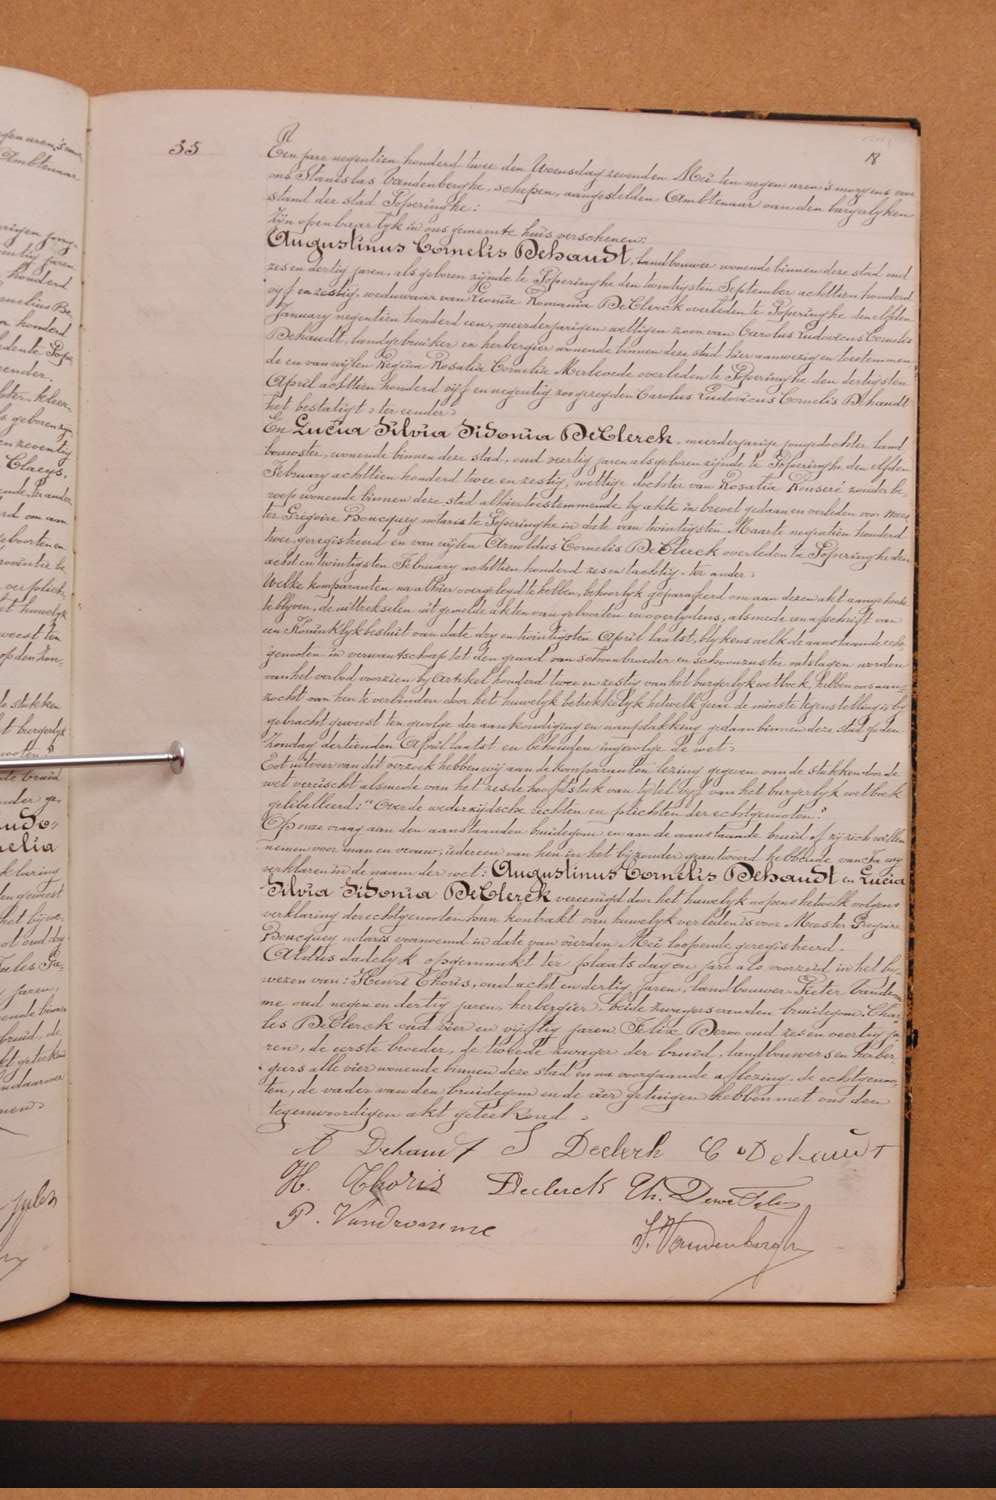 35
18
Een jare negentien honderd twee den Woensdag zevenden Mei ten negen uren 's morgens voor
ons Stanislas Vandenberghe, schepen, aangestelden Ambtenaar van den burgerlyken
stand der stad Poperinghe:
Zijn openbaarlyk in ons gemeente huis verschenen:
Augustinus Cornelis Dehaudt, landbouwer wonende binnen deze stad oud
zes en dertig jaren, als geboren zijnde te Poperinghe den twintigsten September achttien honderd
vijf en zestig, weduwaar van Leonia Romania DeClerck overleden te Poperinghe den elfden
January negentien honderd een, meerderjarigen wettigen zoon van Carolus Ludovicus Cornelis
Dehaudt, landgebruiker en herbergier wonende binnen deze stad hier aanwezig en toestemmen
de en van wijlen Regina Rosalia Cornelia Merlevede overleden te Poperinghe den dertigsten
April achttien honderd vijf en negentig zoo gezegden Carolus Ludovicus Cornelis Dehaudt
het bestatigt, ter eender,
En Lucia Silvia Sidonia DeClerck, meerderjarige jongedochter, land
bouwster, wonende binnen deze stad, oud veertig jaren als geboren zijnde te Poperinghe den elfden
February achttien honderd twee en zestig, wettige dochter van Rosalia Rouseré zonder be
roep wonende binnen deze stad alhier toestemmende by akte in brevet gedaan en verleden voor Mees
ter Gregoire Boucquey notaris te Poperinghe in date van twintigsten Maarte negentien honderd
twee geregistreerd en van wijlen Arnoldus Cornelis DeClerck overleden te Poperinghe den
acht en twintigsten February achttien honderd zes en tachtig, ter ander,
Welke komparanten na alhier overgelegd te hebben, behoorlyk geparafeerd om aan dezen akt aangehecht
te blyven, de uittrekselen uit gemelde akten van geboorten en overlydens, alsmede een afschrift van
een Koninklyk besluit van date dry en twintigsten April laatst, blykens welk de aanstaande echt
genoten in verwantschap tot den graad van schoonbroeder en schoonzuster ontslagen worden
van het verbod voorzien by Artikel honderd twee en zestig van het burgerlyk wetboek, hebben ons aan-
zocht van hen te verbinden door het huwelyk betrekkelyk hetwelk geene de minste tegenstelling is by
gebracht geweest ten gevolge der aankondiging en aanplakking gedaan binnen deze stad op den
Zondag dertienden April laatst en bekomen ingevolge de wet,
Tot uitvoer van dit verzoek hebben wij aan de komparanten lezing gegeven van de stukken door de
wet vereischt alsmede van het zesde hoofdstuk van tytel vyf van het burgerlyk wetboek
gelibelleerd: "Over de wederzijdsche rechten en plichten der echtgenoten."
Op onze vraag aan den aanstaanden bruidegom en aan de aanstaande bruid of zij zich willen
nemen voor man en vrouw, iedereen van hen in het bijzonder geantwoord hebbende van Ja wij
verklaren in de naam der wet: Augustinus Cornelis Dehaudt en Lucia
Silvia Sidonia DeClerck vereenigd door het huwelyk nopens hetwelk volgens
verklaring der echtgenoten hun kontrakt van huwelyk verleden is voor Meester Gregoire
Boucquey notaris voornoemd in date van vierden Mei loopende geregistreerd.
Aldus dadelyk opgemaakt ter plaats dag en jare als voorzeid, in het by-
wezen van: Henri Thoris, oud acht en dertig jaren, landbouwer, Pieter Vandrom
me oud negen en dertig jaren, herbergier, beide zwagers van den bruidegom, Char-
les DeClerck oud vier en vijftig jaren, Felix Dewo oud zes en veertig ja-
ren, de eerste broeder, de tweede zwager der bruid, landbouwers en herber-
giers alle vier wonende binnen deze stad en na voorgaande aflezing, de echtgenoo-
ten, de vader van den bruidegom en de vier getuigen hebben met ons den
tegenwoordigen akt geteekend.
A Dehaudt S Declerck C Dehaudt
H. Thoris Declerck
P. Vandromme
S. Vandenberghe